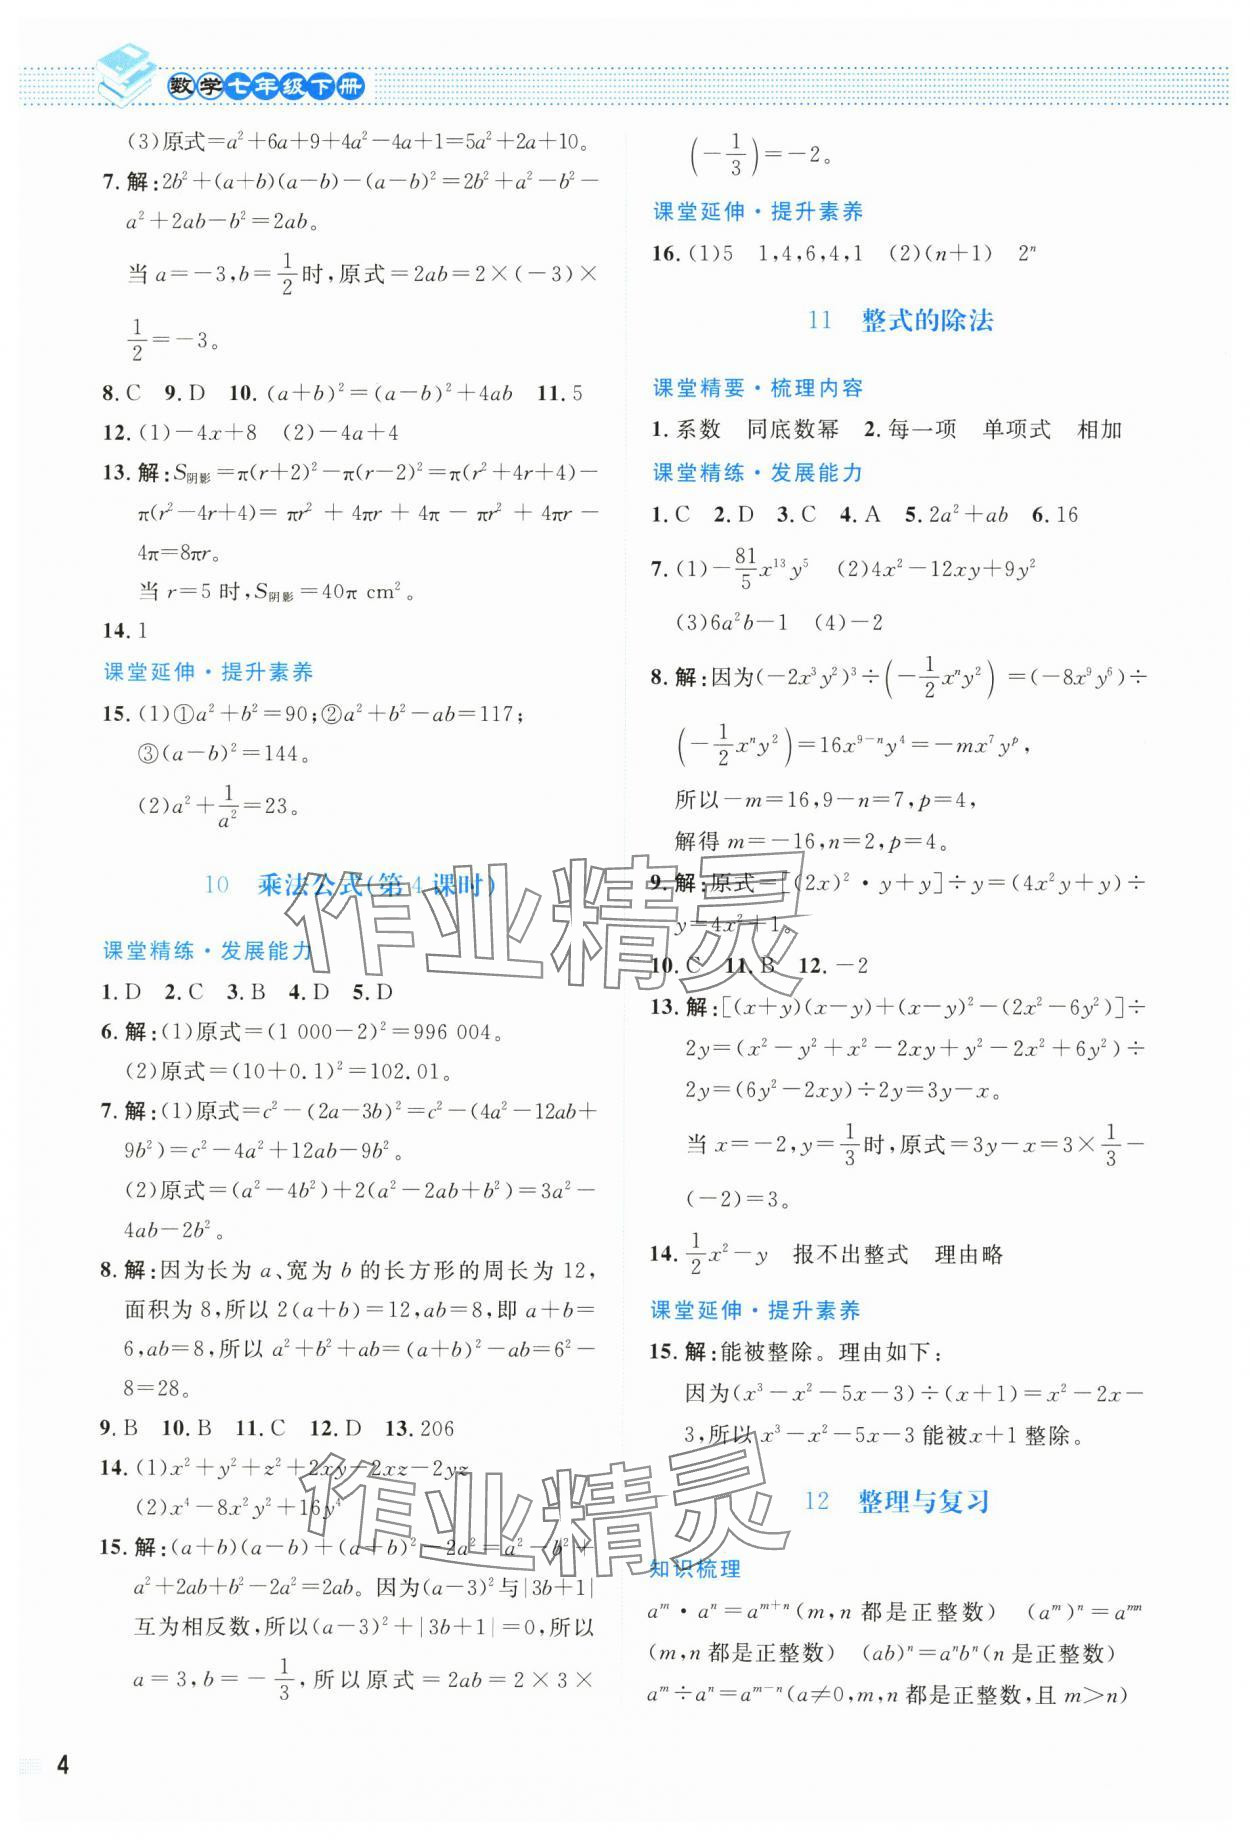 数学七年级下册
(3)原式=a²+6a+9+4a²-4a+1=5a²+2a+10。
7.解:2b²+(a+b)(a-b)-(a-b)²=2b²+a²-b²-
a²+2ab-b²=2ab。
当 a=-3,b=1/2时,原式=2ab=2×(-3)×
1/2=-3。
8.C 9.D 10.(a+b)²=(a-b)²+4ab 11.5
12.(1)-4x+8 (2)-4a+4
13.解:S阴影=π(r+2)²-π(r-2)²=π(r²+4r+4)-
π(r²-4r+4)= πr² + 4πr + 4π - πr² + 4πr -
4π=8πr。
当 r=5 时,S阴影=40π cm²。
14.1
课堂延伸·提升素养
15.(1)①a²+b²=90;②a²+b²-ab=117;
③(a-b)²=144。
(2)a²+1/a²=23。
10 乘法公式(第4课时)
课堂精练·发展能力
1.D 2.C 3.B 4.D 5.D
6.解:(1)原式=(1 000-2)²=996 004。
(2)原式=(10+0.1)²=102.01。
7.解:(1)原式=c²-(2a-3b)²=c²-(4a²-12ab+
9b²)=c²-4a²+12ab-9b²。
(2)原式=(a²-4b²)+2(a²-2ab+b²)=3a²-
4ab-2b²。
8.解:因为长为 a、宽为 b 的长方形的周长为 12,
面积为 8,所以 2(a+b)=12,ab=8,即 a+b=
6,ab=8,所以 a²+b²+ab=(a+b)²-ab=6²-
8=28。
9.B 10.B 11.C 12.D 13.206
14.(1)x²+y²+z²+2xy-2xz-2yz
(2)x⁴-8x²y²+16y⁴
15.解:(a+b)(a-b)+(a+b)²-2a²=a²-b²+
a²+2ab+b²-2a²=2ab。因为(a-3)²与|3b+1|
互为相反数,所以(a-3)²+|3b+1|=0,所以
a=3,b=-1/3,所以原式=2ab=2×3×
4
(-1/3)=-2。
课堂延伸·提升素养
16.(1)5 1,4,6,4,1 (2)(n+1) 2ⁿ
11 整式的除法
课堂精要·梳理内容
1.系数 同底数幂 2.每一项 单项式 相加
课堂精练·发展能力
1.C 2.D 3.C 4.A 5.2a²+ab 6.16
7.(1)-81/5x¹³y⁵ (2)4x²-12xy+9y²
(3)6a²b-1 (4)-2
8.解:因为(-2x³y²)³÷(-1/2xⁿy²)=(-8x⁹y⁶)÷
(-1/2xⁿy²)=16x⁹⁻ⁿy⁴=-mx⁷yᵖ,
所以-m=16,9-n=7,p=4,
解得 m=-16,n=2,p=4。
9.解:原式=[(2x)²·y+y]÷y=(4x²y+y)÷
y=4x²+1。
10.C 11.B 12.-2
13.解:[(x+y)(x-y)+(x-y)²-(2x²-6y²)]÷
2y=(x²-y²+x²-2xy+y²-2x²+6y²)÷
2y=(6y²-2xy)÷2y=3y-x。
当 x=-2,y=1/3时,原式=3y-x=3×1/3-
(-2)=3。
14.1/2x²-y 报不出整式 理由略
课堂延伸·提升素养
15.解:能被整除。理由如下:
因为(x³-x²-5x-3)÷(x+1)=x²-2x-
3,所以 x³-x²-5x-3 能被x+1 整除。
12 整理与复习
知识梳理
aᵐ·aⁿ=aᵐ⁺ⁿ(m,n 都是正整数) (aᵐ)ⁿ=aᵐⁿ
(m,n 都是正整数) (ab)ⁿ=aⁿbⁿ(n 是正整数)
aᵐ÷aⁿ=aᵐ⁻ⁿ(a≠0,m,n 都是正整数,且 m>n)
作业精灵
作业精灵